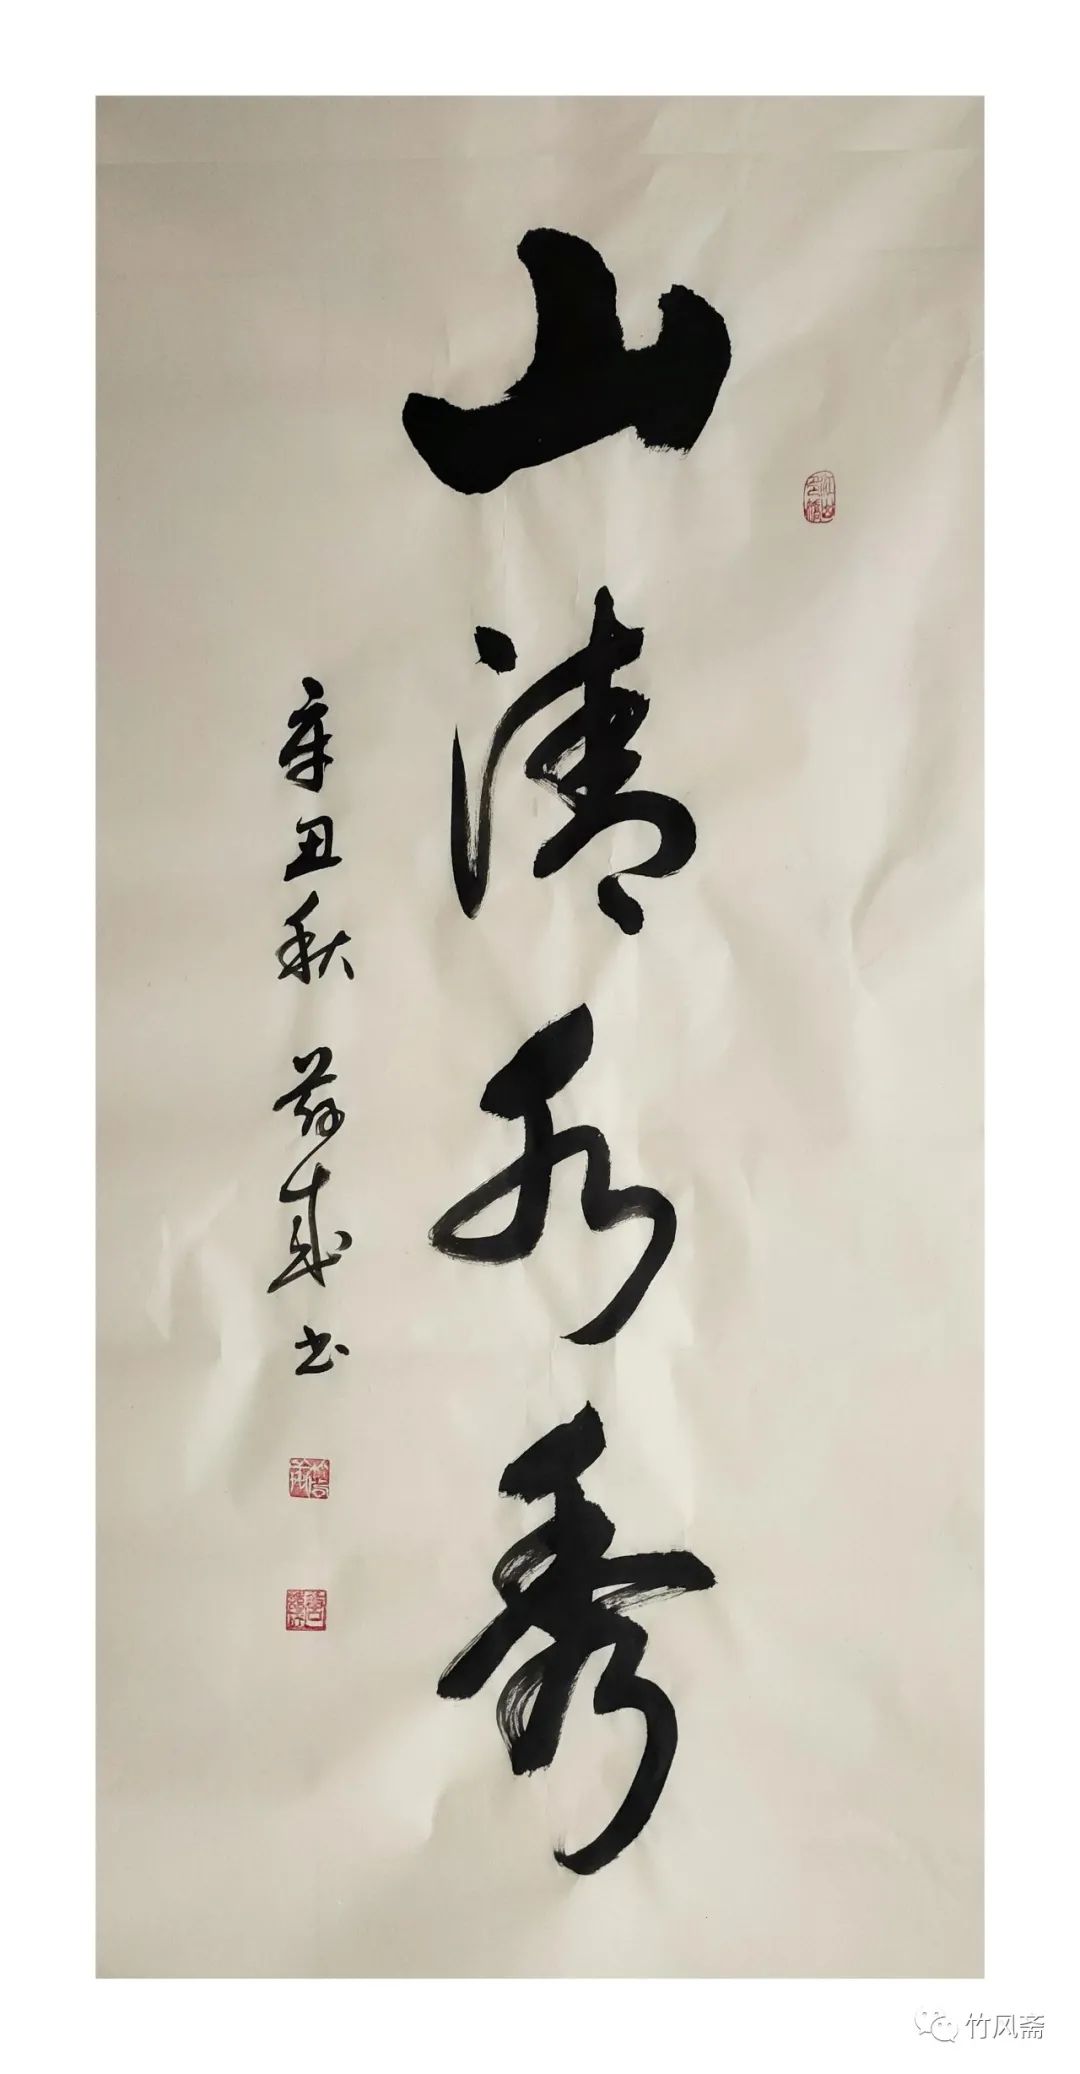 山清水秀
辛丑秋 蘇成书
竹风斋